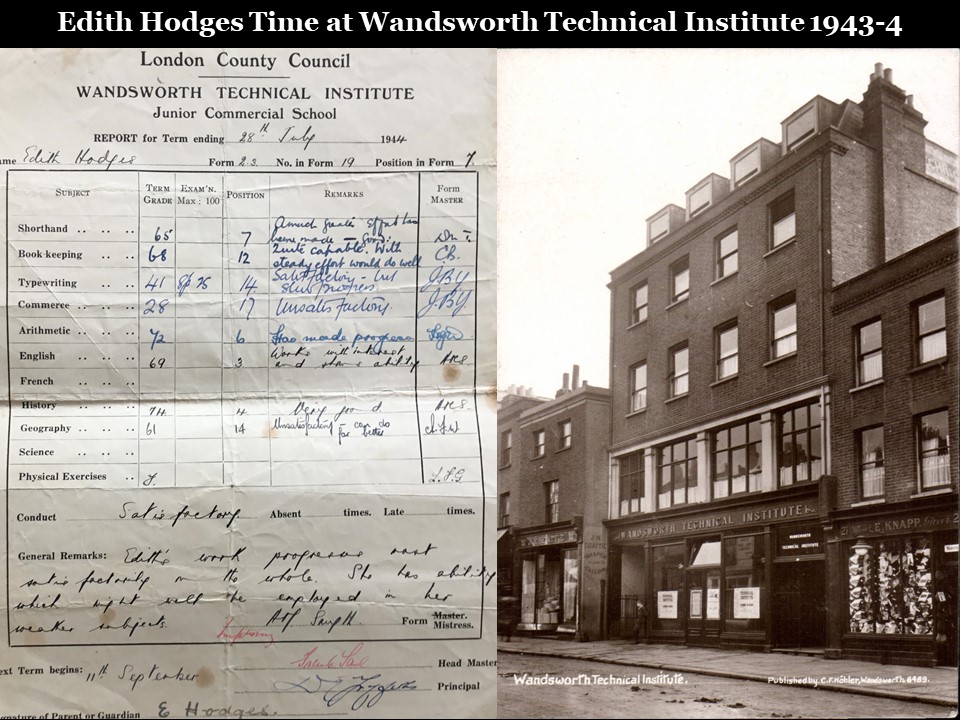 Edith Hodges Time at Wandsworth Technical Institute 1943-4
London County Council
WANDSWORTH TECHNICAL INSTITUTE
Junior Commercial School
REPORT for Term ending 28th July 1944
ame Edith Hodges Form 2 s. No. in Form 19 Position in Form 7.
SUBJECT TERM GRADE EXAM'N. Max: 100 POSITION REMARKS Form MASTER
Shorthand 65 7 A much greater effort has been made - Good.
Book-keeping 68 12 Quite capable. With steady effort would do well CB.
Typewriting 41 Sp 25 14 Satisfactory - but slow progress J.B.Y
Commerce 28 17 Unsatisfactory. J.B.Y
Arithmetic 72 6 Has made progress
English 69 3 Works with interest and shows ability
French
History 74 4 Very good
Geography 61 14 Unsatisfactory - can do far better
Science
Physical Exercises L.F.G
Conduct Satisfactory. Absent times. Late times.
General Remarks: Edith's work progresses most
satisfactorily on the whole. She has ability
which might well be employed in her
weaker subjects. Form Master. Mistress.
Improving
Head Master
ext Term begins: 11th September
Principal
gnature of Parent or Guardian E Hodges.
WANDSWORTH TECHNICAL INSTITUTE
WANDSWORTH
TECHNICAL INSTITUTE
E. KNAPP
Wandsworth Technical Institute.
Published by C.F. Köhler, Wandsworth. 6489.